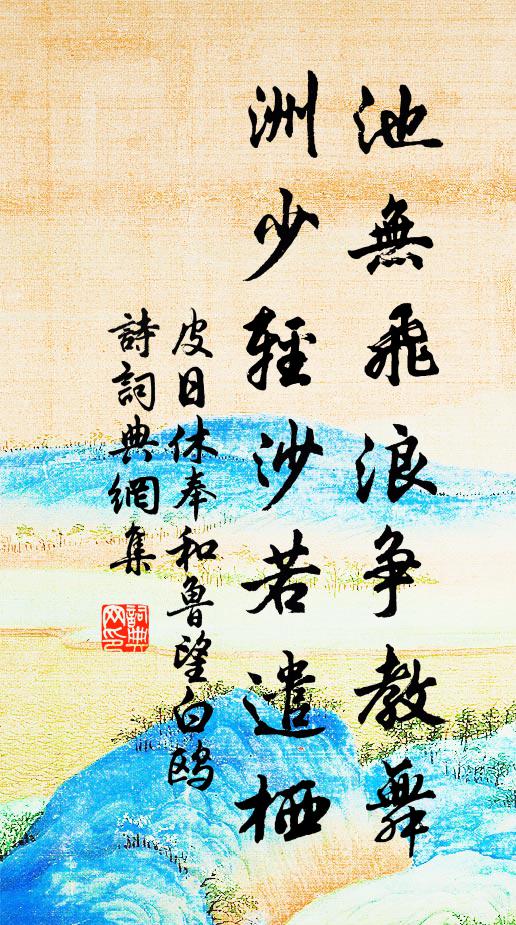 池無飛浪争教舞
洲少輕沙若遣栖
皮日休奉和魯望白鸥
詩詞典網集
詞典